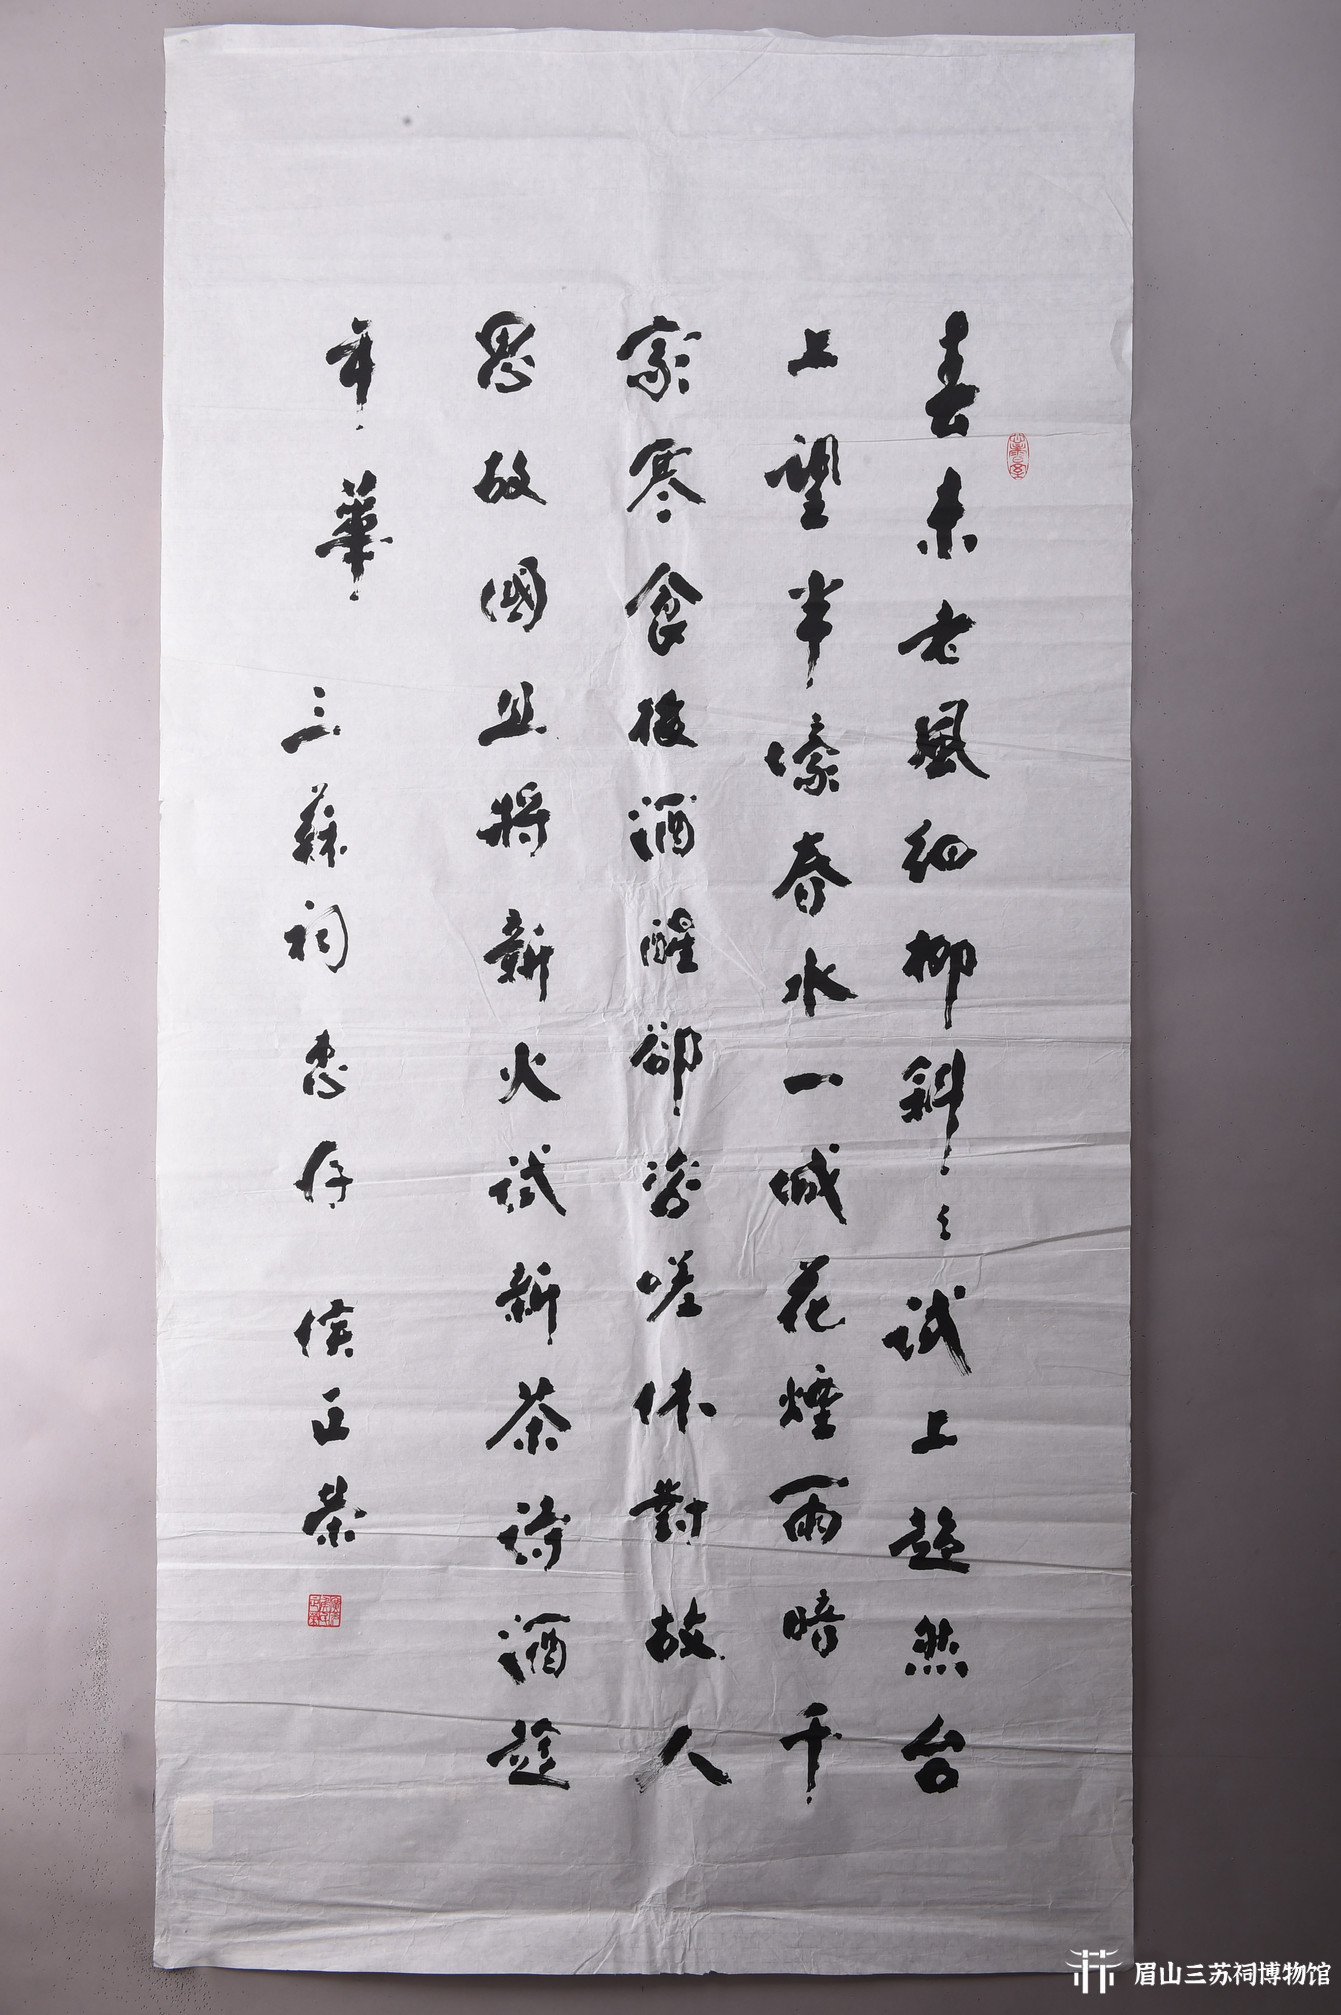 春未老風細柳斜〻試上超然台
上望半壕春水一城花煙雨暗千
家寒食後酒醒卻咨嗟休對故人
思故國且將新火試新茶詩酒趁
年華
三蘇祠惠存
侯正榮
眉山三苏祠博物馆